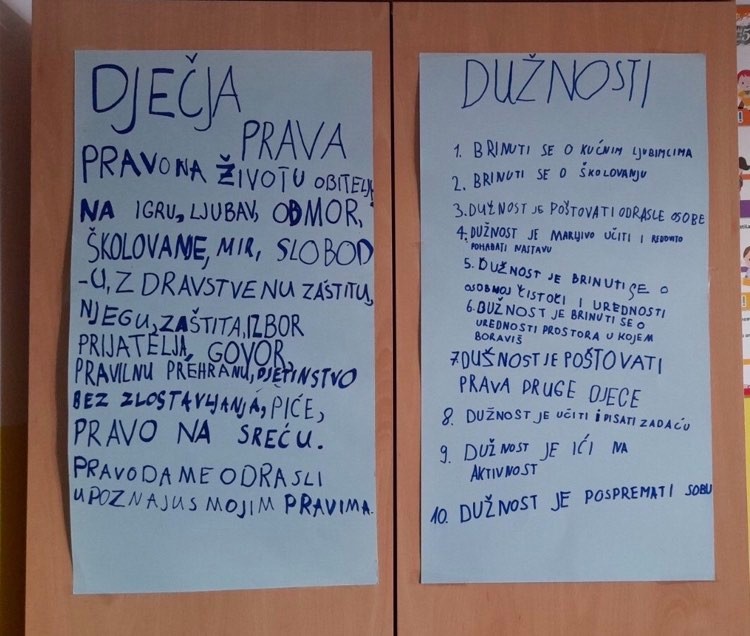 DJEČJA
PRAVA
PRAVO NA ŽIVOT U OBITELJI,
NA IGRU, LJUBAV, ODMOR,
ŠKOLOVANJE, MIR, SLOBOD
-U, ZDRAVSTVENU ZAŠTITU,
NJEGU, ZAŠTITA, IZBOR
PRIJATELJA, GOVOR,
PRAVILNU PREHRANU, DJETINSTVO
BEZ ZLOSTAVLJANJA, PIĆE,
PRAVO NA SREĆU.
PRAVO DA ME ODRASLI
UPOZNAJU S MOJIM PRAVIMA.
DUŽNOSTI
1. BRINUTI SE O KUĆNIM LJUBIMCIMA
2. BRINUTI SE O ŠKOLOVANJU
3. DUŽNOST JE POŠTOVATI ODRASLE OSOBE
4. DUŽNOST JE MARLJIVO UČITI I REDOVITO
POHAĐATI NASTAVU
5. DUŽNOST JE BRINUTI SE O
OSOBNOJ ČISTOĆI I UREDNOSTI
6. DUŽNOST JE BRINUTI SE O
UREDNOSTI PROSTORA U KOJEM
BORAVIŠ
7. DUŠNOST JE POŠTOVATI
PRAVA DRUGE DJECE
8. DUŽNOST JE UČITI I PISATI ZADAĆU
9. DUŽNOST JE IĆI NA
AKTIVNOST
10. DUŽNOST JE POSPREMATI SOBU